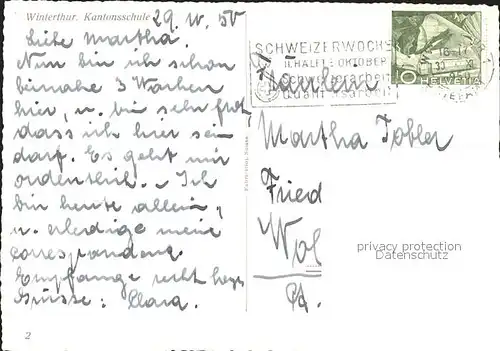 Winterthur. Kantonsschule
29. IV. 50
Liebe Martha.
Nun bin ich schon
beinahe 3 Wochen
hier, u. bin sehr froh,
dass ich hier sein
darf. Es geht mir
ordentlich. Ich
bin heute allein,
u. erledige meine
correspondenz.
Empfange recht herz.
Grüsse: Clara.
2
SCHWEIZERWOCHE
OKTOBER
10
HELVETIA
Fräulein
Martha Tobler
Fried
Wol
privacy protection
Datenschutz